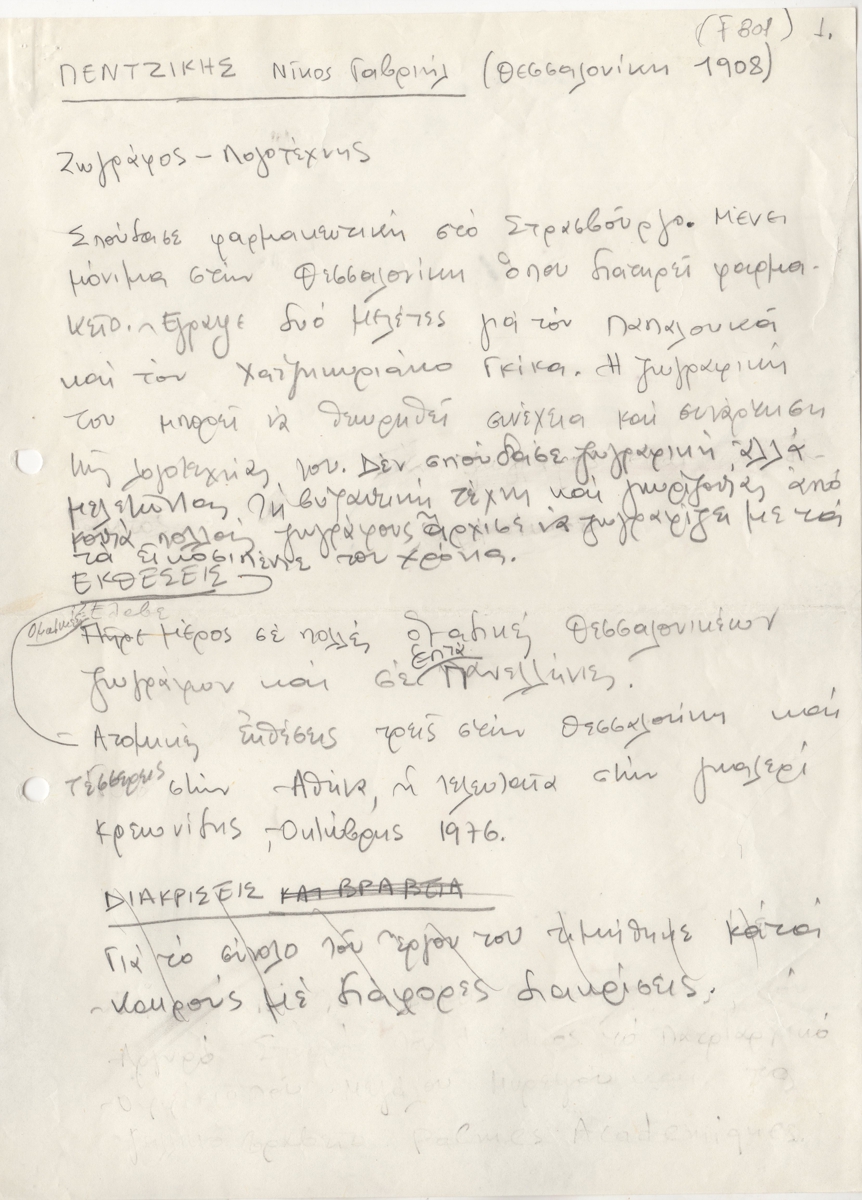 (F801) 1.
ΠΕΝΤΖΙΚΗΣ Νίκος Γαβριήλ (Θεσσαλονίκη 1908)
Ζωγράφος – Λογοτέχνης
Σπούδασε φαρμακευτική στό Στρασβούργο. Μένει
μόνιμα στήν Θεσσαλονίκη ὅπου διατηρεῖ φαρμα-
κεῖο. Ἔγραψε δυό μελέτες γιά τόν Παπαλουκά
καί τόν Χατζηκυριάκο Γκίκα. Ἡ ζωγραφική
του μπορεῖ νά θεωρηθεῖ συνέχεια καί συνάρτηση
τῆς λογοτεχνίας του. Δέν σπούδασε ζωγραφική ἀλλά
μελετώντας τή βυζαντινή τέχνη καί γνωρίζοντας ἀπό
κοντά πολλούς ζωγράφους ἄρχισε νά ζωγραφίζει μετά
τά εἰκοσιπέντε του χρόνια.
ΕΚΘΕΣΕΙΣ
Ὁμαδικές Ἔλαβε
Πῆρε μέρος σέ πολλές ὁμαδικές Θεσσαλονικέων
ἑπτά
ζωγράφων καί σέ Πανελλήνιες.
– Ἀτομικές ἐκθέσεις τρεῖς στήν Θεσσαλονίκη καί
τέσσερεις στήν Ἀθήνα, ἡ τελευταῖα στήν γκαλερί
Κρεωνίδης, Ὀκτώβρης 1976.
ΔΙΑΚΡΙΣΕΙΣ ΚΑΙ ΒΡΑΒΕΙΑ
Γιά τό σύνολο τοῦ ἔργου του τιμήθηκε κατά
καιρούς μέ διάφορες διακρίσεις.
τό Πατριαρχικό
Palmes Académiques.